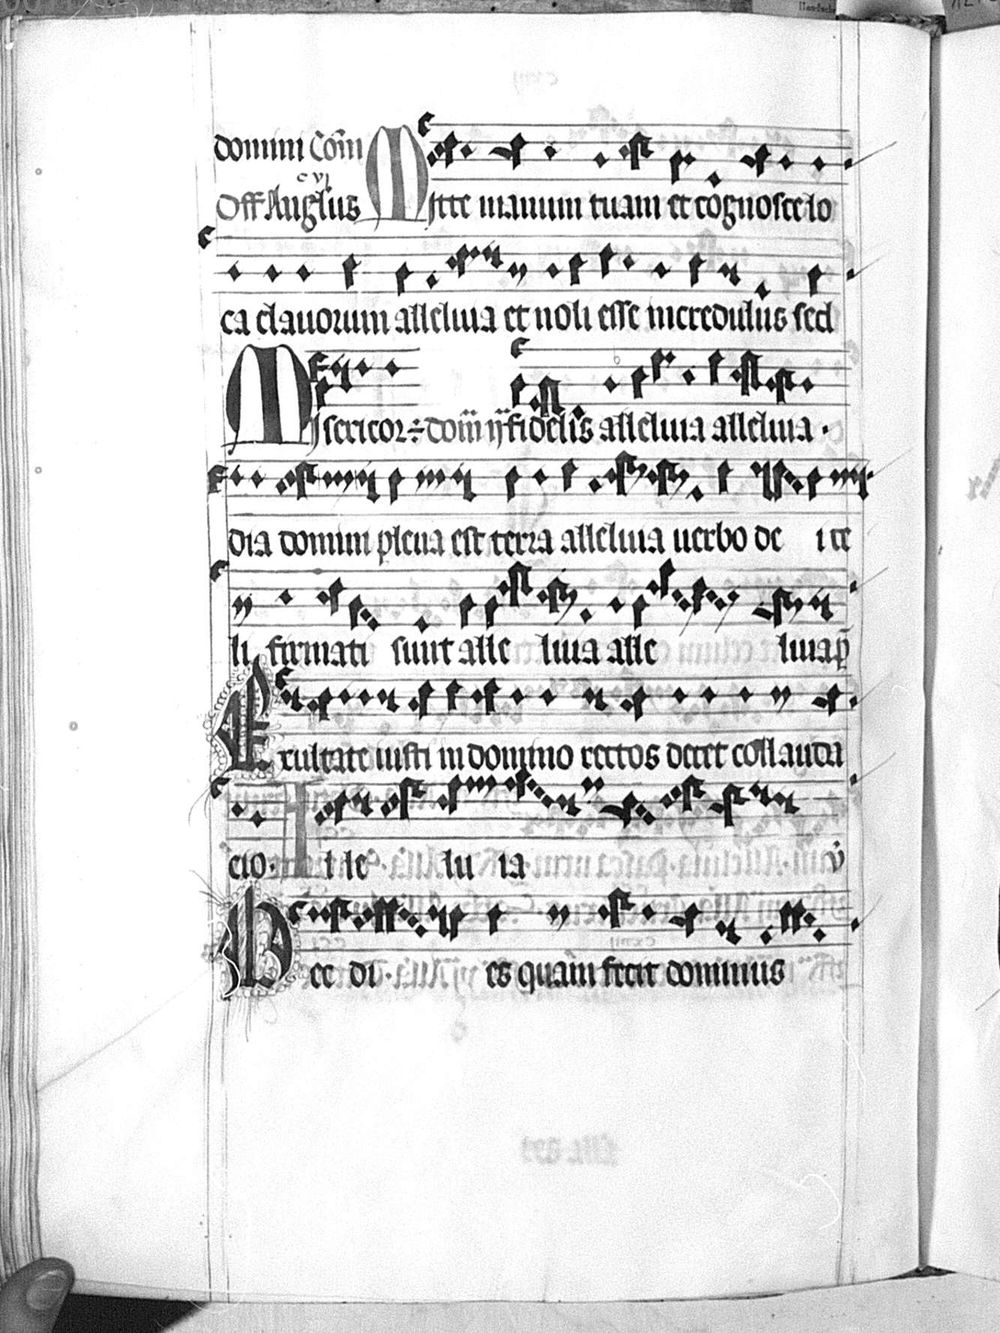 domini Com̄
c vj
Off Angl̄us Mitte manum tuam et cognosce lo
ca clauorum alleluia et noli esse incredulus sed
Misericor÷ domī ij fidelis alleluia alleluia ·
dia domini plena est terra alleluia uerbo de i ce
li firmati sunt alle luia alle luia p̄
Exultate iusti in domino rectos decet collauda
cio · A l le lu ia v̄
Hec di · es quam fecit dominus